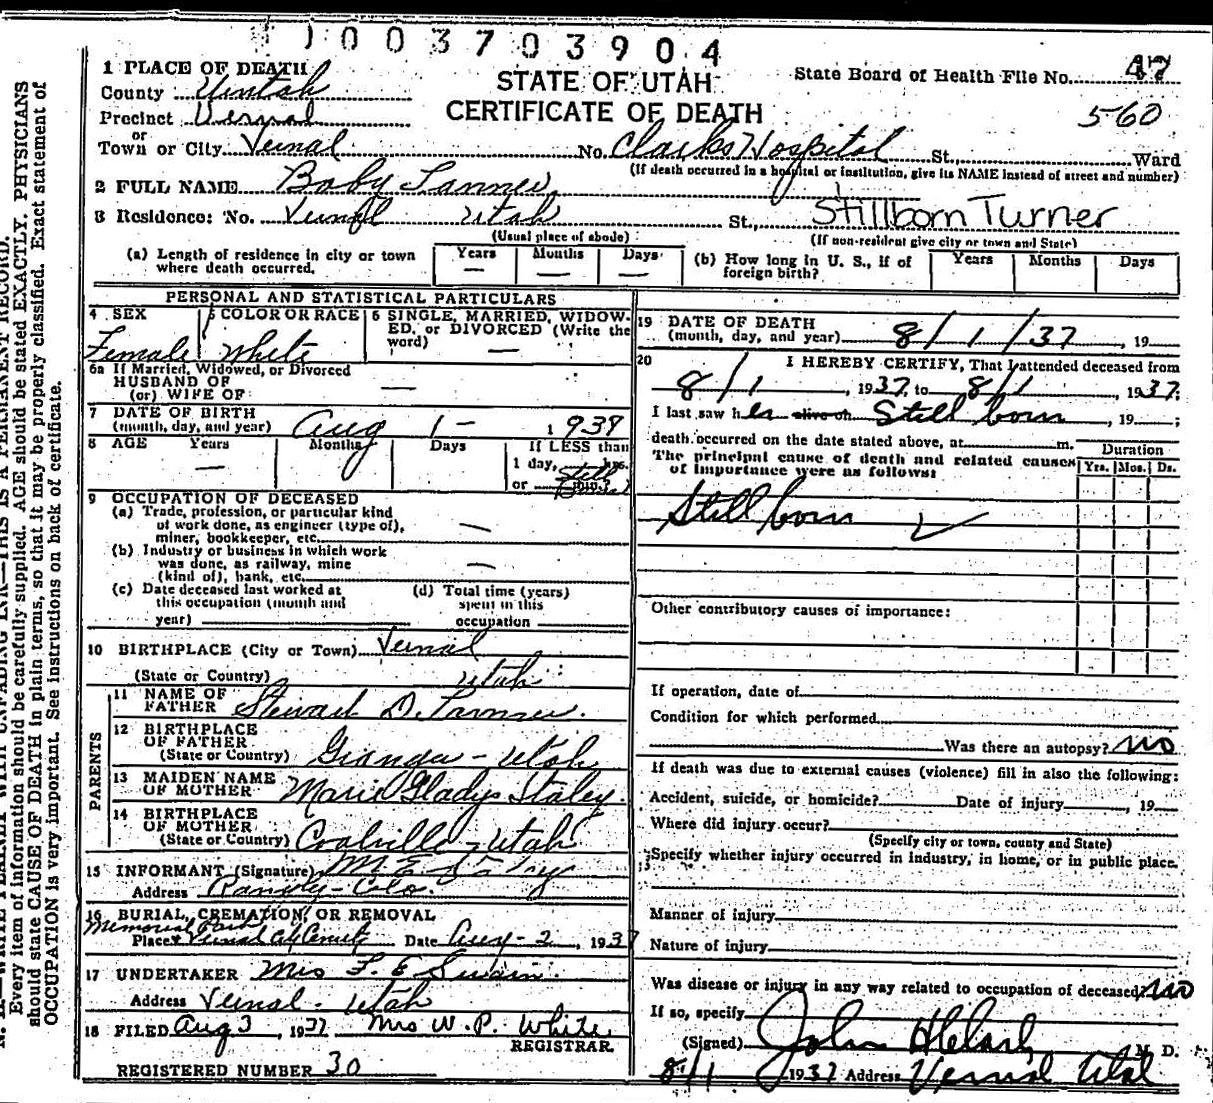 1003703904
1 PLACE OF DEATH
STATE OF UTAH
CERTIFICATE OF DEATH
State Board of Health File No. 47
560
County Uintah
Precinct Vernal
or
Town or City Vernal No. Clarks Hospital St., Ward
(If death occurred in a hospital or institution, give its NAME instead of street and number)
2 FULL NAME Baby
3 Residence: No. Vernal Utah St., Stillborn Turner
(Usual place of abode) (If non-resident give city or town and State)
(a) Length of residence in city or town where death occurred. Years — Months — Days —
(b) How long in U. S., if of foreign birth? Years Months Days
PERSONAL AND STATISTICAL PARTICULARS
4 SEX Female
5 COLOR OR RACE White
6 SINGLE, MARRIED, WIDOWED, or DIVORCED (Write the word) —
6a If Married, Widowed, or Divorced
HUSBAND OF
(or) WIFE OF —
7 DATE OF BIRTH
(month, day, and year) Aug 1 - 1937
8 AGE Years Months Days If LESS than
— 1 day, hrs.
or min? Still Born
9 OCCUPATION OF DECEASED
(a) Trade, profession, or particular kind
of work done, as engineer (type of),
miner, bookkeeper, etc. —
(b) Industry or business in which work
was done, as railway, mine
(kind of), bank, etc. —
(c) Date deceased last worked at
this occupation (month and
year)
(d) Total time (years)
spent in this
occupation
10 BIRTHPLACE (City or Town) Vernal
(State or Country) Utah
PARENTS
11 NAME OF
FATHER Stewart D.
12 BIRTHPLACE
OF FATHER
(State or Country) Utah
13 MAIDEN NAME
OF MOTHER Marie Gladys Staley
14 BIRTHPLACE
OF MOTHER
(State or Country) Coalville - Utah
15 INFORMANT (Signature) M E
Address Rangely - Colo.
16 BURIAL, CREMATION, OR REMOVAL
Memorial Park
Place Vernal City Date Aug - 2, 1937
17 UNDERTAKER Mrs L. E Swain.
Address Vernal - Utah
18 FILED Aug 3, 1937 Mrs W. P. White
REGISTRAR.
REGISTERED NUMBER 30
19 DATE OF DEATH
(month, day, and year) 8/1/37, 19
20 I HEREBY CERTIFY, That I attended deceased from
8/1, 1937, to 8/1, 1937;
I last saw her alive on Still born, 19 ;
death occurred on the date stated above, at m.
The principal cause of death and related causes
of importance were as follows:
Duration
Yrs. Mos. Ds.
Still born
Other contributory causes of importance:
If operation, date of
Condition for which performed
Was there an autopsy? no
If death was due to external causes (violence) fill in also the following:
Accident, suicide, or homicide? Date of injury , 19
Where did injury occur?
(Specify city or town, county and State)
Specify whether injury occurred in industry, in home, or in public place.
Manner of injury
Nature of injury
Was disease or injury in any way related to occupation of deceased? no
If so, specify
(Signed) John M. D.
8/1 1937 Address Vernal Utah
Every item of information should be carefully supplied. AGE should be stated EXACTLY. PHYSICIANS
should state CAUSE OF DEATH in plain terms, so that it may be properly classified. Exact statement of
OCCUPATION is very important. See instructions on back of certificate.